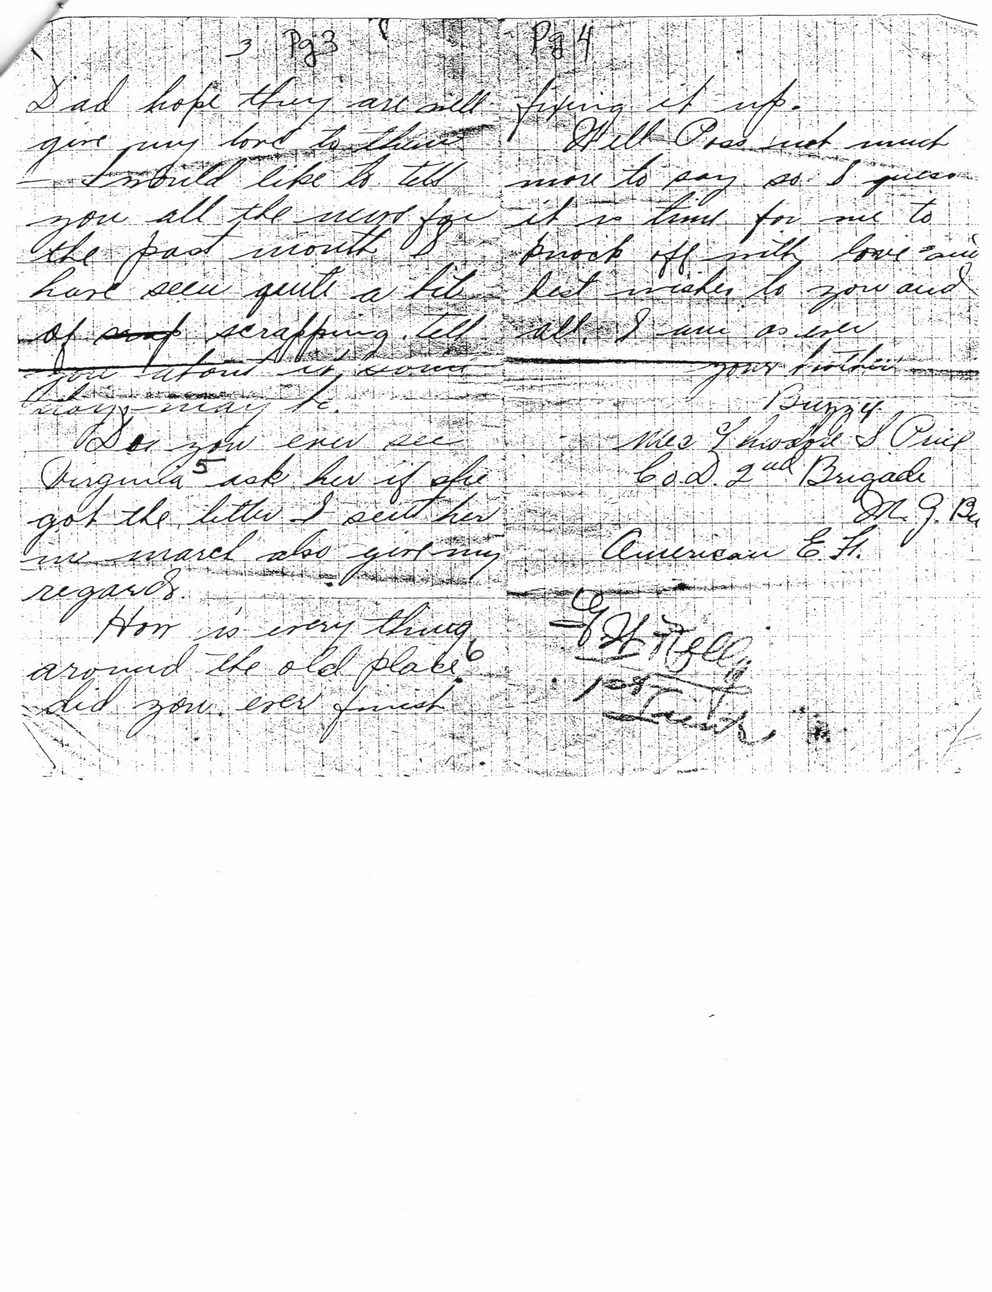 3 Pg 3
Dad hope they are well
give my love to them
I would like to tell
you all the news for
the past month I
have seen quite a bit
of scrap scrapping. tell
you about it some
day, may be.
Do you ever see
Virginia 5 ask her if she
got the letter I sent her
in march also give my
regards.
How is every thing
around the old place 6
did you ever finish
Pg 4
fixing it up.
Well Poss not much
more to say so I guess
it is time for me to
knock off with love and
best wishes to you and
all. I am as ever
your brother
Buzzy.
Theodore S
Co. D. 2nd Brigade
M. G. B
American E. F.
1st Lieut